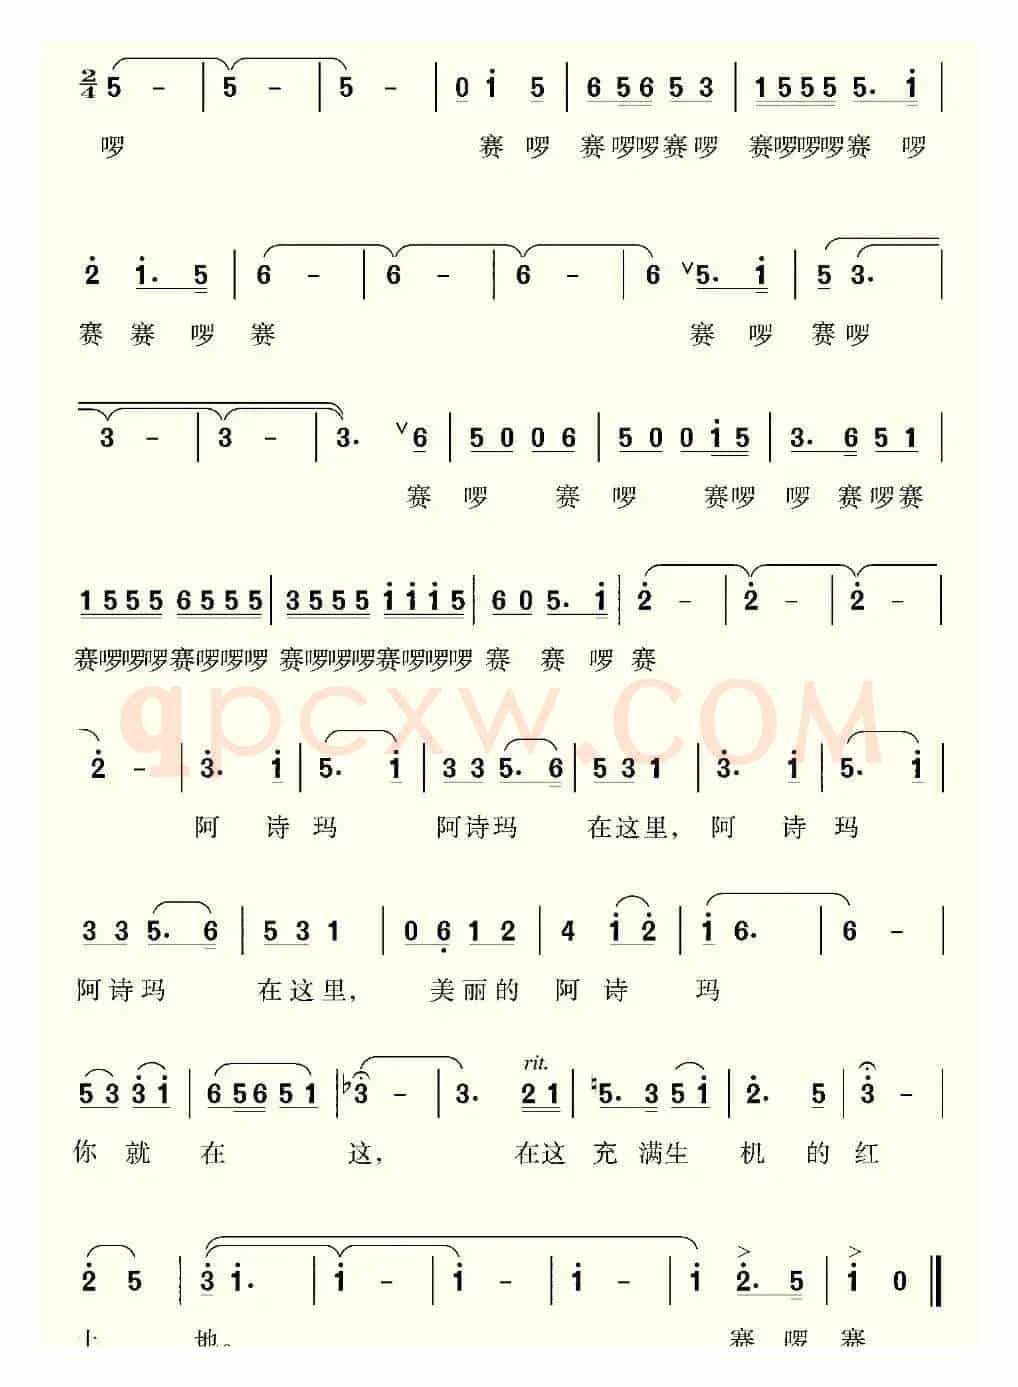 2/4 5 – | 5 – | 5 – | 0 i 5 | 6 5 6 5 3 | 1 5 5 5 5. i |
啰 赛 啰 赛啰啰赛啰 赛啰啰啰赛 啰
2 i. 5 | 6 – | 6 – | 6 – | 6 ∨ 5. i | 5 3. |
赛 赛 啰 赛 赛 啰 赛啰
3 – | 3 – | 3. ∨ 6 | 5 0 0 6 | 5 0 0 i 5 | 3. 6 5 1 |
赛 啰 赛 啰 赛啰 啰 赛啰赛
1 5 5 5 6 5 5 5 | 3 5 5 5 i i i 5 | 6 0 5. i | 2 – | 2 – | 2 – |
赛啰啰啰赛啰啰啰 赛啰啰啰赛啰啰啰 赛 赛 啰 赛
qpcxw.COM
2 – | 3. i | 5. i | 3 3 5. 6 | 5 3 1 | 3. i | 5. i |
阿 诗 玛 阿诗玛 在这里, 阿 诗 玛
3 3 5. 6 | 5 3 1 | 0 6 1 2 | 4 i 2 | i 6. | 6 – |
阿诗玛 在这里, 美丽的 阿 诗 玛
rit.
5 3 3 i | 6 5 6 5 1 | ♭3 – | 3. 2 1 | ♮5. 3 5 i | 2. 5 | 3 – |
你 就 在 这, 在这 充 满生 机 的 红
2 5 | 3 i. | i – | i – | i – | i 2. 5 | i 0 ‖
土 地。 赛 啰 赛